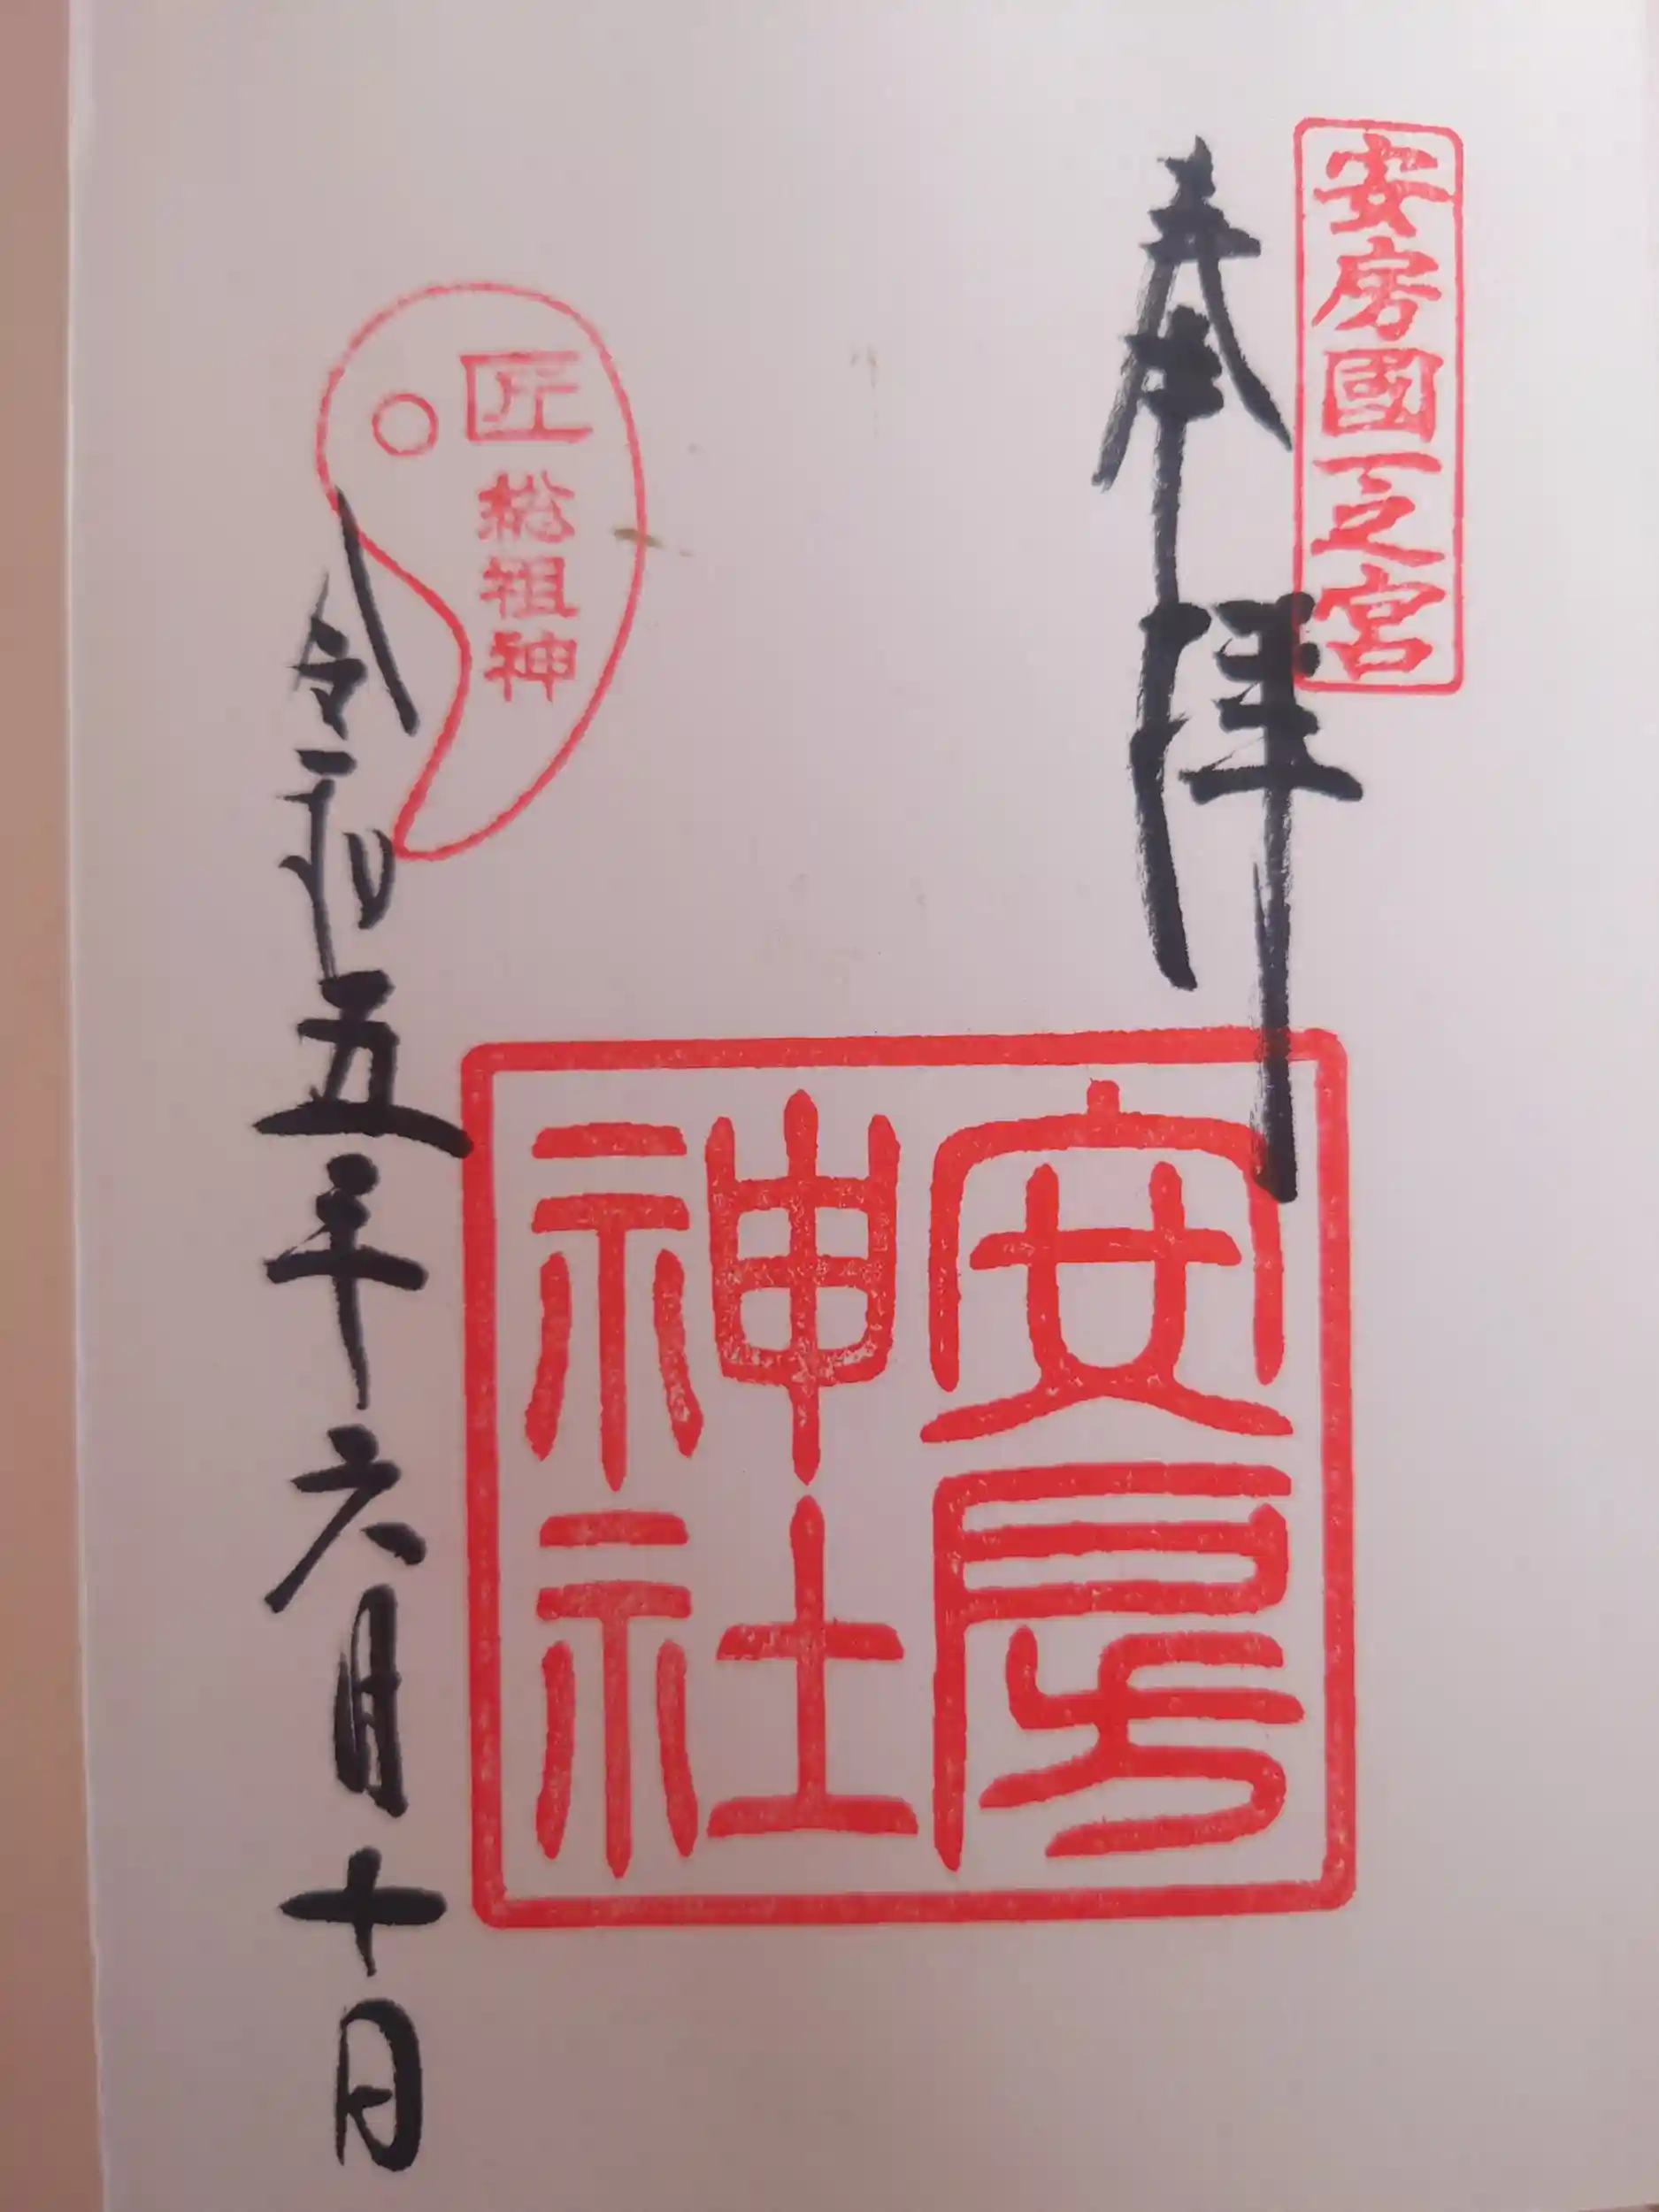 安房國一之宮
奉拝
安房
神社
匠
総祖神
令和五年六月十日